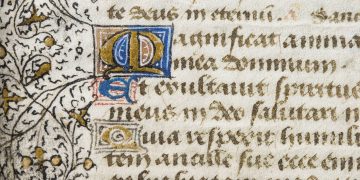 te deus in eternū. San
Magnificat anima
mea dominum
Et exultauit spiritus
meus in deo salutari m
Quia respexit humili
tem ancille sue ecce eni